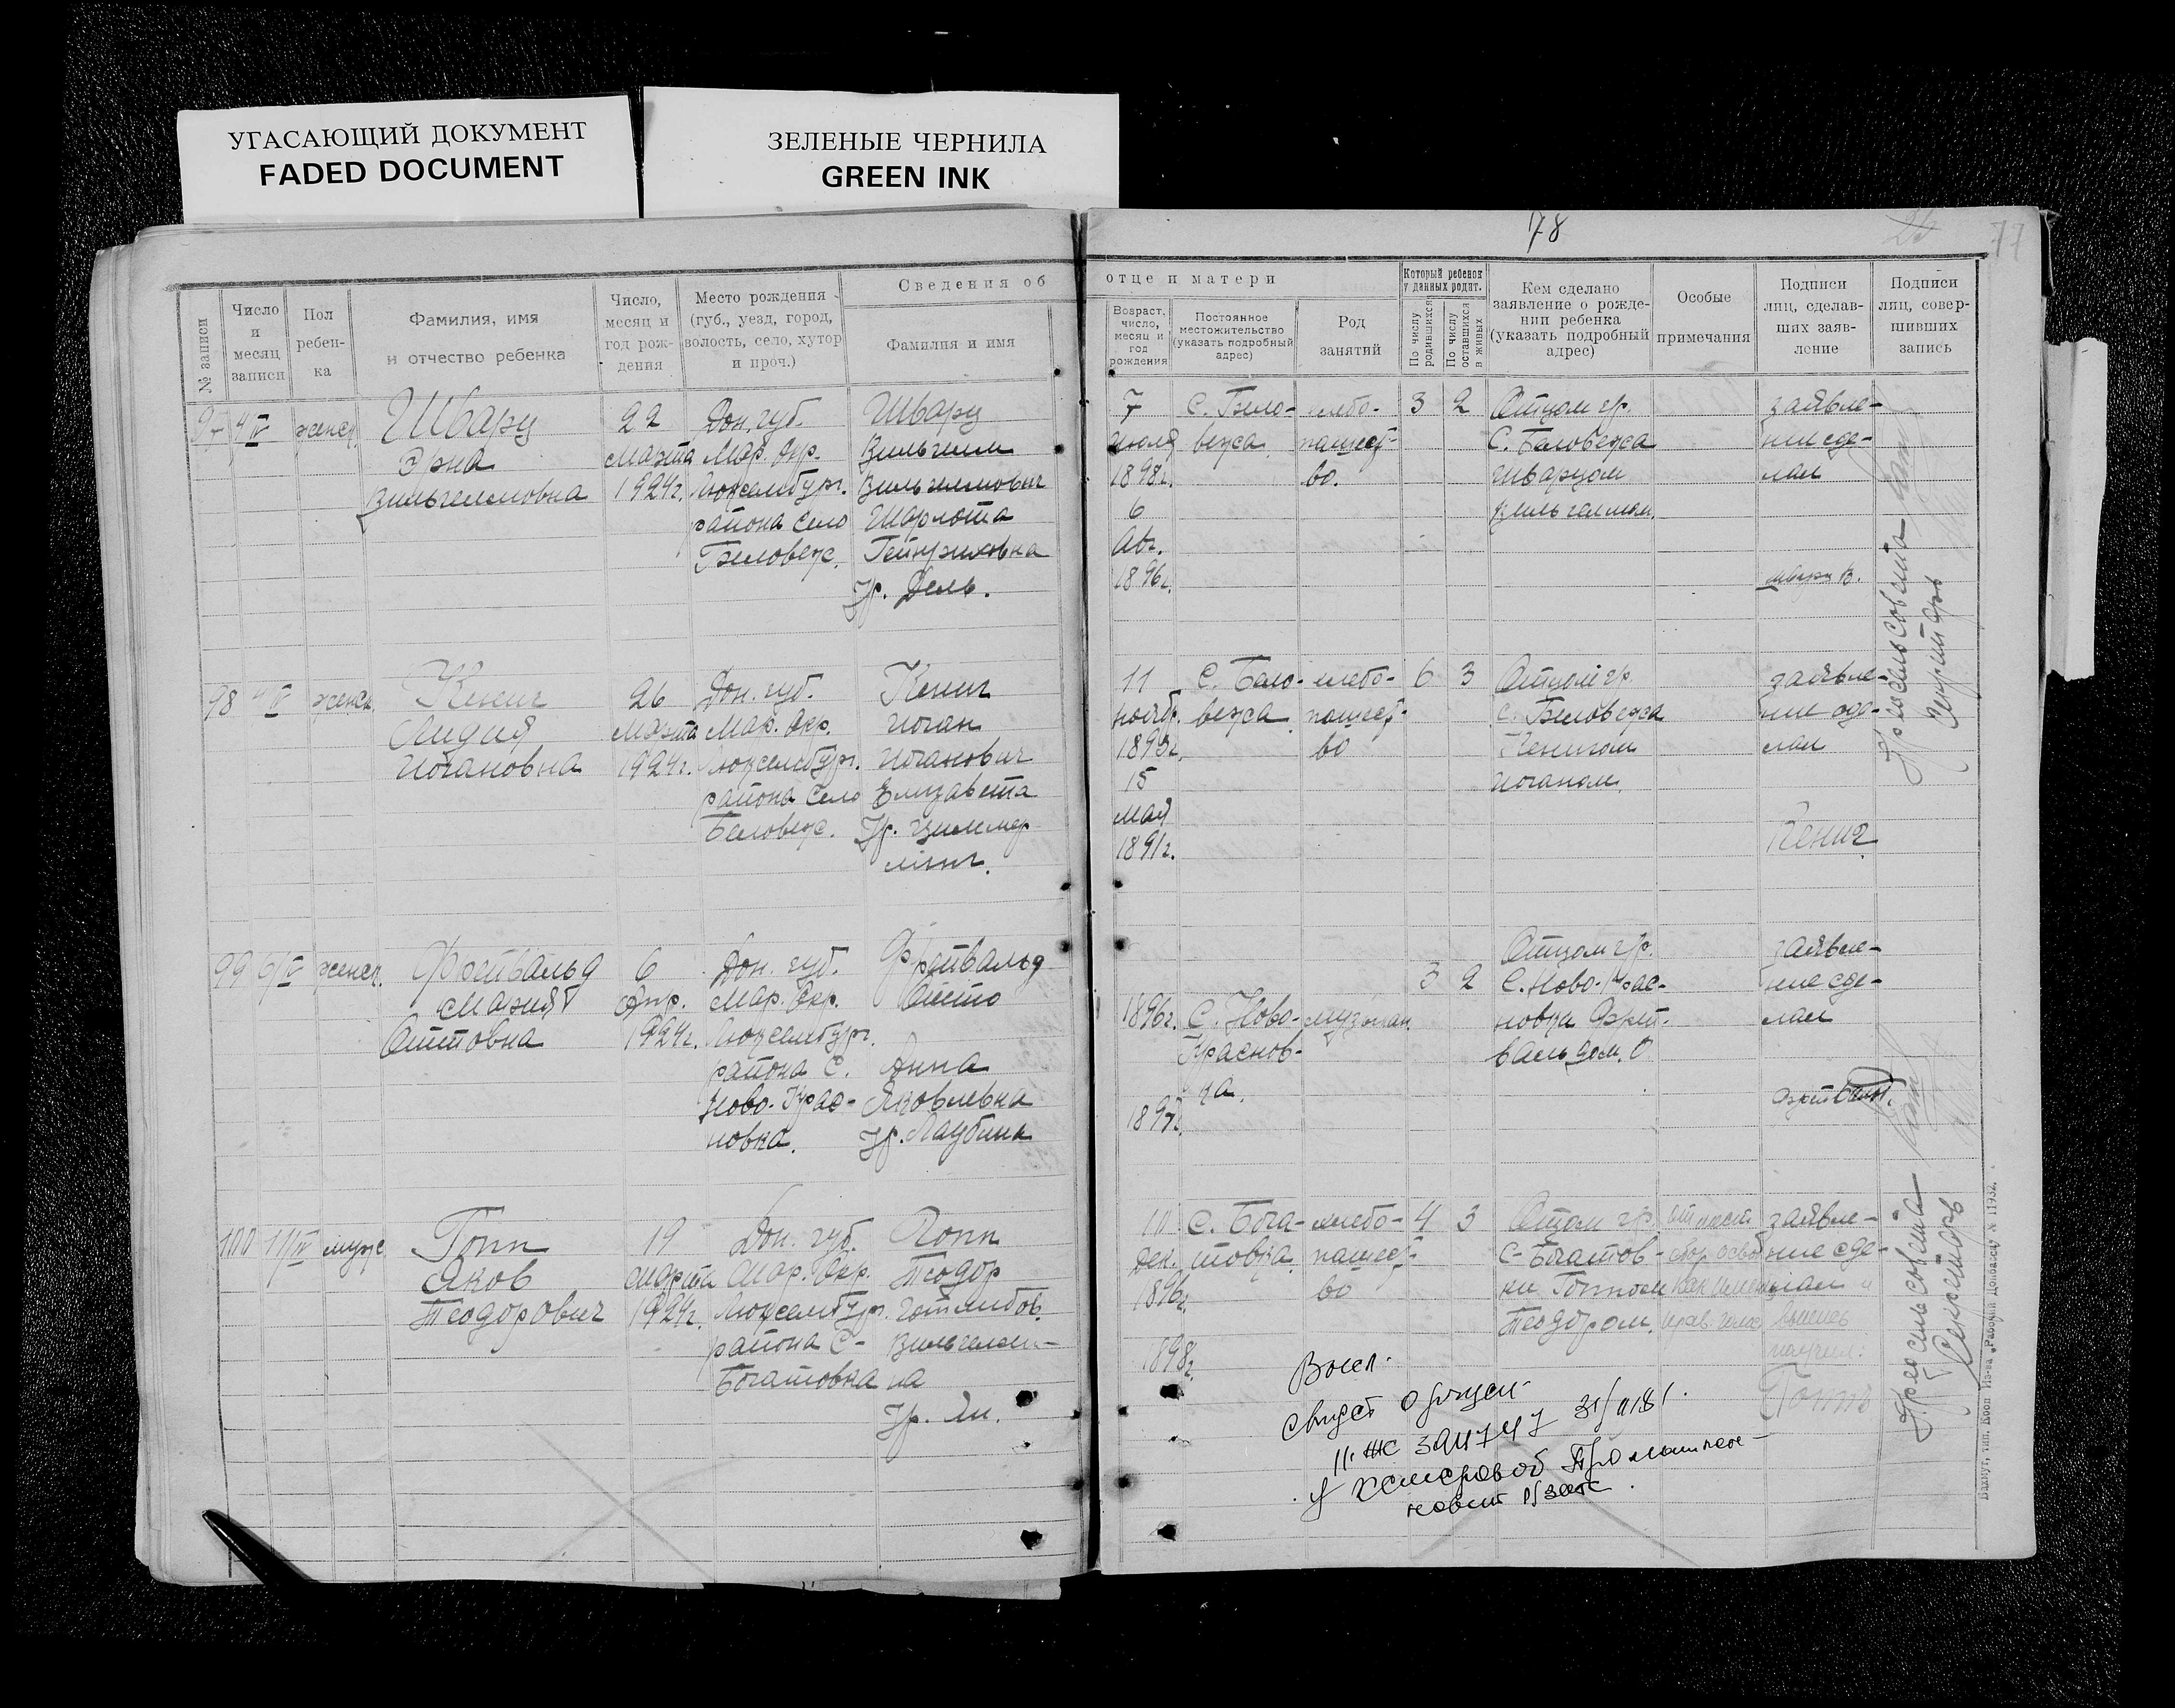 УГАСАЮЩИЙ ДОКУМЕНТ
FADED DOCUMENT
ЗЕЛЕНЫЕ ЧЕРНИЛА
GREEN INK
78
77
Сведения об отце и матери
№ записи
Число и месяц записи
Пол ребен-ка
Фамилия, имя и отчество ребенка
Число, месяц и год рож-дения
Место рождения (губ., уезд, город, волость, село, хутор и проч.)
Фамилия и имя
Возраст, число, месяц и год рождения
Постоянное местожительство (указать подробный адрес)
Род занятий
Который ребенок у данных родит.
По числу родившихся
По числу оставшихся в живых
Кем сделано заявление о рожде-нии ребенка (указать подробный адрес)
Особые примечания
Подписи лиц, сделав-ших заяв-ление
Подписи лиц, совер-шивших запись
4/IV женск.
Шварц
Эрна
Вильгельмовна
22
Марта
1924г.
Дон. губ.
Мар. Окр.
Люксембург.
района село
Беловеж.
Шварц
Вильгельм
Вильгельмович
Шарлота
Гейнриховна
Ур. Дель.
7
июля
1898г.
6
Авг.
1896г.
С. Бело-
вежа
хлебо-
пашест-
во.
3 2
Отцом гр.
С. Беловежа
Шварцом
Вильгельмом.
заявле-
ние сде-
лал
Шварц В.
98 4/IV женск.
Кениг
Лидия
Иогановна
26
Марта
1924г.
Дон. губ.
Мар. Окр.
Люксембург.
района село
Беловеж.
Кениг
Иоган
Иоганович
Елизавета
Ур. Циммер
линг.
11
нояб.
1893г.
15
мая
1891г.
С. Бело-
вежа
хлебо-
пашест-
во
6 3
Отцом гр
С. Беловежа
Кенигом
Иоганом.
заявле-
ние сде-
лал
Кениг
Предсельсовета
Секретарь
99 6/IV женск.
Фрейвальд
Оттовна
6
Апр.
1924г.
Дон. губ.
Мар. Окр.
Люксембург.
района С.
Ново-Крас-
новка.
Фрейвальд
Отто
Анна
Яковлевна
Ур. Лаубман
1896г.
1897г.
С. Ново-
Краснов-
ка.
музыкан.
3 2
Отцом гр.
С. Ново-Крас-
новка Фрей-
вальдом. О
заявле-
ние сде-
лал
100 11/IV муж.
Гопп
Яков
Теодорович
19
Марта
1924г.
Дон. губ.
Мар. Окр.
Люксембург.
района С-
Богатовка
Гопп
Теодор
Готлибов.
Вильгельми-
на
Ур. Ли.
10
дек.
1896г.
1898г.
С. Бога-
товка
хлебо-
пашест-
во
4 3
Отцом гр.
С-Богатов-
ки Гоппом
Теодором.
заявле-
ние сде-
лал
Гоппъ
Предсельсовета
Секретарь
свидет о рожден-
II-ЖС 394747
Бахмут, тип. Кооп Из-ва „Рабочий Донбасса“ № 11932.